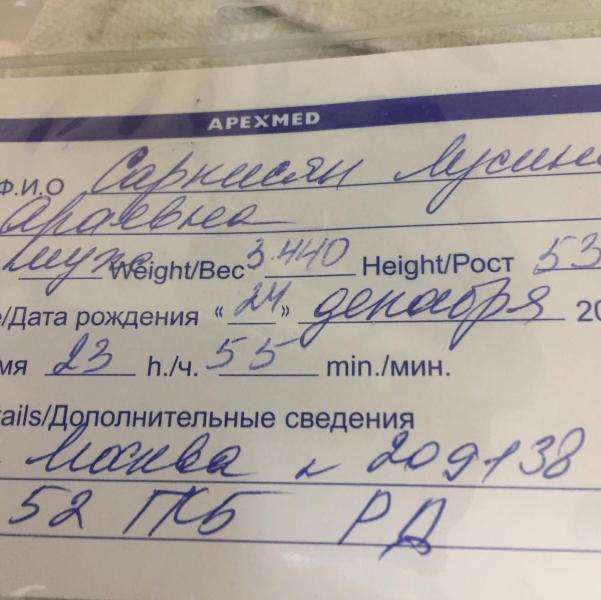 APEXMED
Ф.И.О Саркисян Лусине
Араевна
муж Weight/Вес 3.440 Height/Рост 53
e/Дата рождения « 24 » декабря 20
мя 23 h./ч. 55 min./мин.
tails/Дополнительные сведения
Москва 209138
52 ГКБ РД